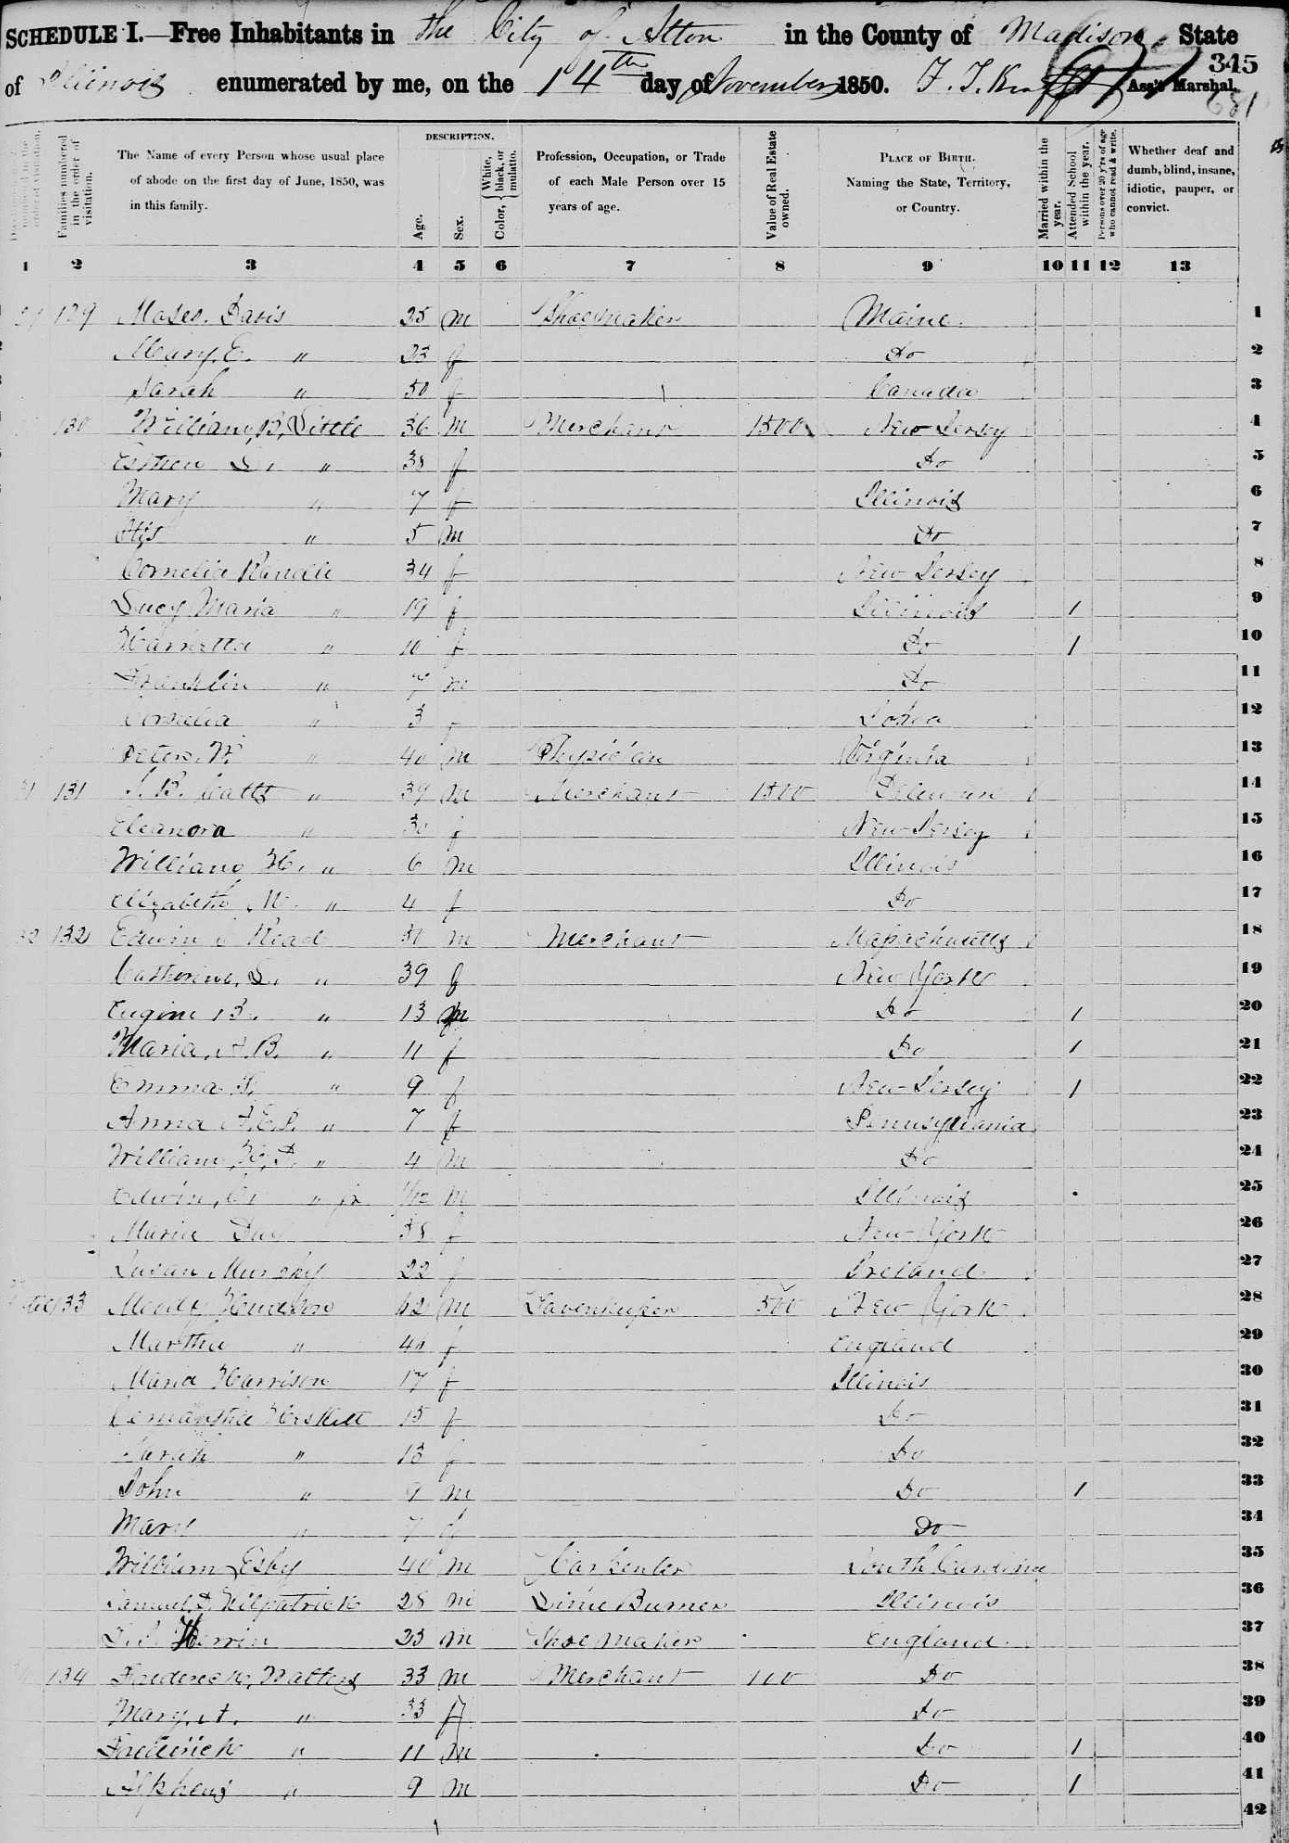 SCHEDULE I.—Free Inhabitants in the City of Alton in the County of Madison State
of Illinois enumerated by me, on the 14th day of November 1850. Ass't Marshal.
345
681
DESCRIPTION.
Families numbered in the order of visitation.
The Name of every Person whose usual place of abode on the first day of June, 1850, was in this family.
Age.
Sex.
Color, { White, black, or mulatto.
Profession, Occupation, or Trade of each Male Person over 15 years of age.
Value of Real Estate owned.
PLACE OF BIRTH. Naming the State, Territory, or Country.
Married within the year.
Attended School within the year.
Persons over 20 y'rs of age who cannot read & write.
Whether deaf and dumb, blind, insane, idiotic, pauper, or convict.
1 2 3 4 5 6 7 8 9 10 11 12 13
129 Moses Davis 25 m Shoemaker Maine 1
Mary E. " 23 f Do 2
Sarah " 50 f Canada 3
130 William B. Little 36 m Merchant 1500 New Jersey 4
Esther L. " 38 f Do 5
Mary " 7 f Illinois 6
Otis " 5 m Do 7
Cornelia Randle 34 f New Jersey 8
Lucy Maria " 19 f Illinois 1 9
Harrietta " 10 f Do 1 10
Franklin " 7 m Do 11
Cornelia " 3 Iowa 12
Peter W. " 40 m Physician Virginia 13
131 " 39 m Merchant 1500 14
Eleanora " 30 f New Jersey 15
William H. " 6 m Illinois 16
Elizabeth M. " 4 f Do 17
32 132 Edwin Read 31 m Merchant Massachusetts 18
Catherine L. " 39 f New York 19
Eugine B. " 13 m Do 1 20
Maria A.B. " 11 f Do 1 21
Emma " 9 f New Jersey 1 22
Anna " 7 f Pennsylvania 23
William " 4 m Do 24
Edwin C. " jr. 1/12 m Illinois 25
Maria 38 f New York 26
Susan Murphy 22 f Ireland 27
133 42 m Tavernkeeper 500 New York 28
Martha " 40 f England 29
Maria Harrison 17 f Illinois 30
15 f Do 31
Sarah " 13 f Do 32
John " 9 m Do 1 33
Mary " 7 f Do 34
William Esby 40 m Carpenter South Carolina 35
Samuel Kilpatrick 28 m Lime Burner Illinois 36
Herrin 23 m Shoemaker England 37
134 Frederick Walters 33 m Merchant 100 Do 38
Mary A. " 33 f Do 39
Frederick " 11 m Do 1 40
Alpheus " 9 m Do 1 41
42